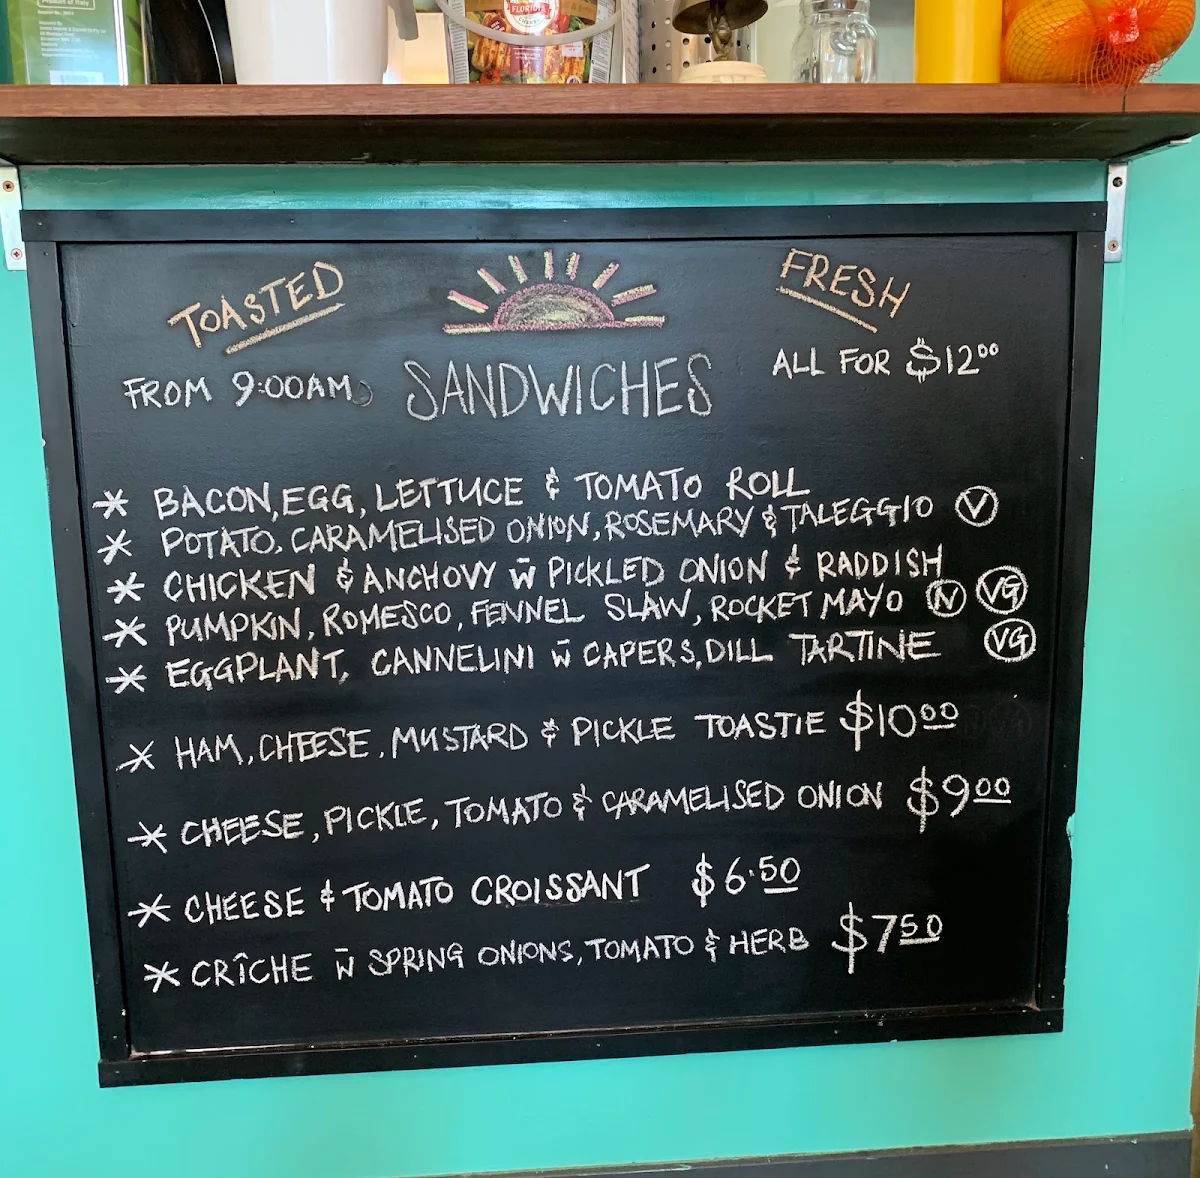 Product of Italy
FLORIDIA
CHEESE
TOASTED
FRESH
FROM 9:00AM
SANDWICHES
ALL FOR $12⁰⁰
* BACON, EGG, LETTUCE & TOMATO ROLL
* POTATO, CARAMELISED ONION, ROSEMARY & TALEGGIO Ⓥ
* CHICKEN & ANCHOVY w̄ PICKLED ONION & RADDISH
* PUMPKIN, ROMESCO, FENNEL SLAW, ROCKET MAYO Ⓝ VG
* EGGPLANT, CANNELINI w̄ CAPERS, DILL TARTINE VG
* HAM, CHEESE, MUSTARD & PICKLE TOASTIE $10⁰⁰
* CHEESE, PICKLE, TOMATO & CARAMELISED ONION $9⁰⁰
* CHEESE & TOMATO CROISSANT $6.50
* CRÎCHE w̄ SPRING ONIONS, TOMATO & HERB $7⁵⁰